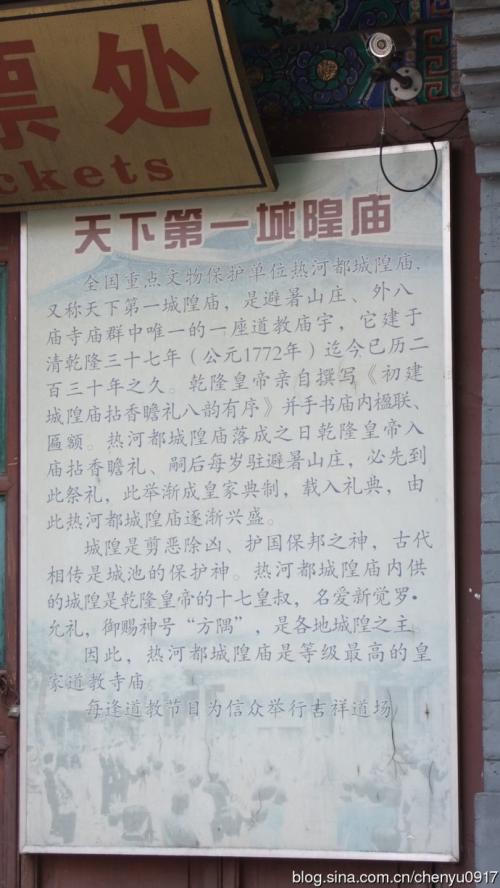 票处
ckets
天下第一城隍庙
全国重点文物保护单位热河都城隍庙，
又称天下第一城隍庙，是避暑山庄、外八
庙寺庙群中唯一的一座道教庙宇，它建于
清乾隆三十七年（公元1772年）迄今已历二
百三十年之久。乾隆皇帝亲自撰写《初建
城隍庙拈香瞻礼八韵有序》并手书庙内楹联、
匾额。热河都城隍庙落成之日乾隆皇帝入
庙拈香瞻礼、嗣后每岁驻避暑山庄，必先到
此祭礼，此举渐成皇家典制，载入礼典，由
此热河都城隍庙逐渐兴盛。
城隍是剪恶除凶、护国保邦之神，古代
相传是城池的保护神。热河都城隍庙内供
的城隍是乾隆皇帝的十七皇叔，名爱新觉罗•
允礼，御赐神号“方隅”，是各地城隍之主
因此，热河都城隍庙是等级最高的皇
家道教寺庙
每逢道教节日为信众举行吉祥道场
blog.sina.com.cn/chenyu0917